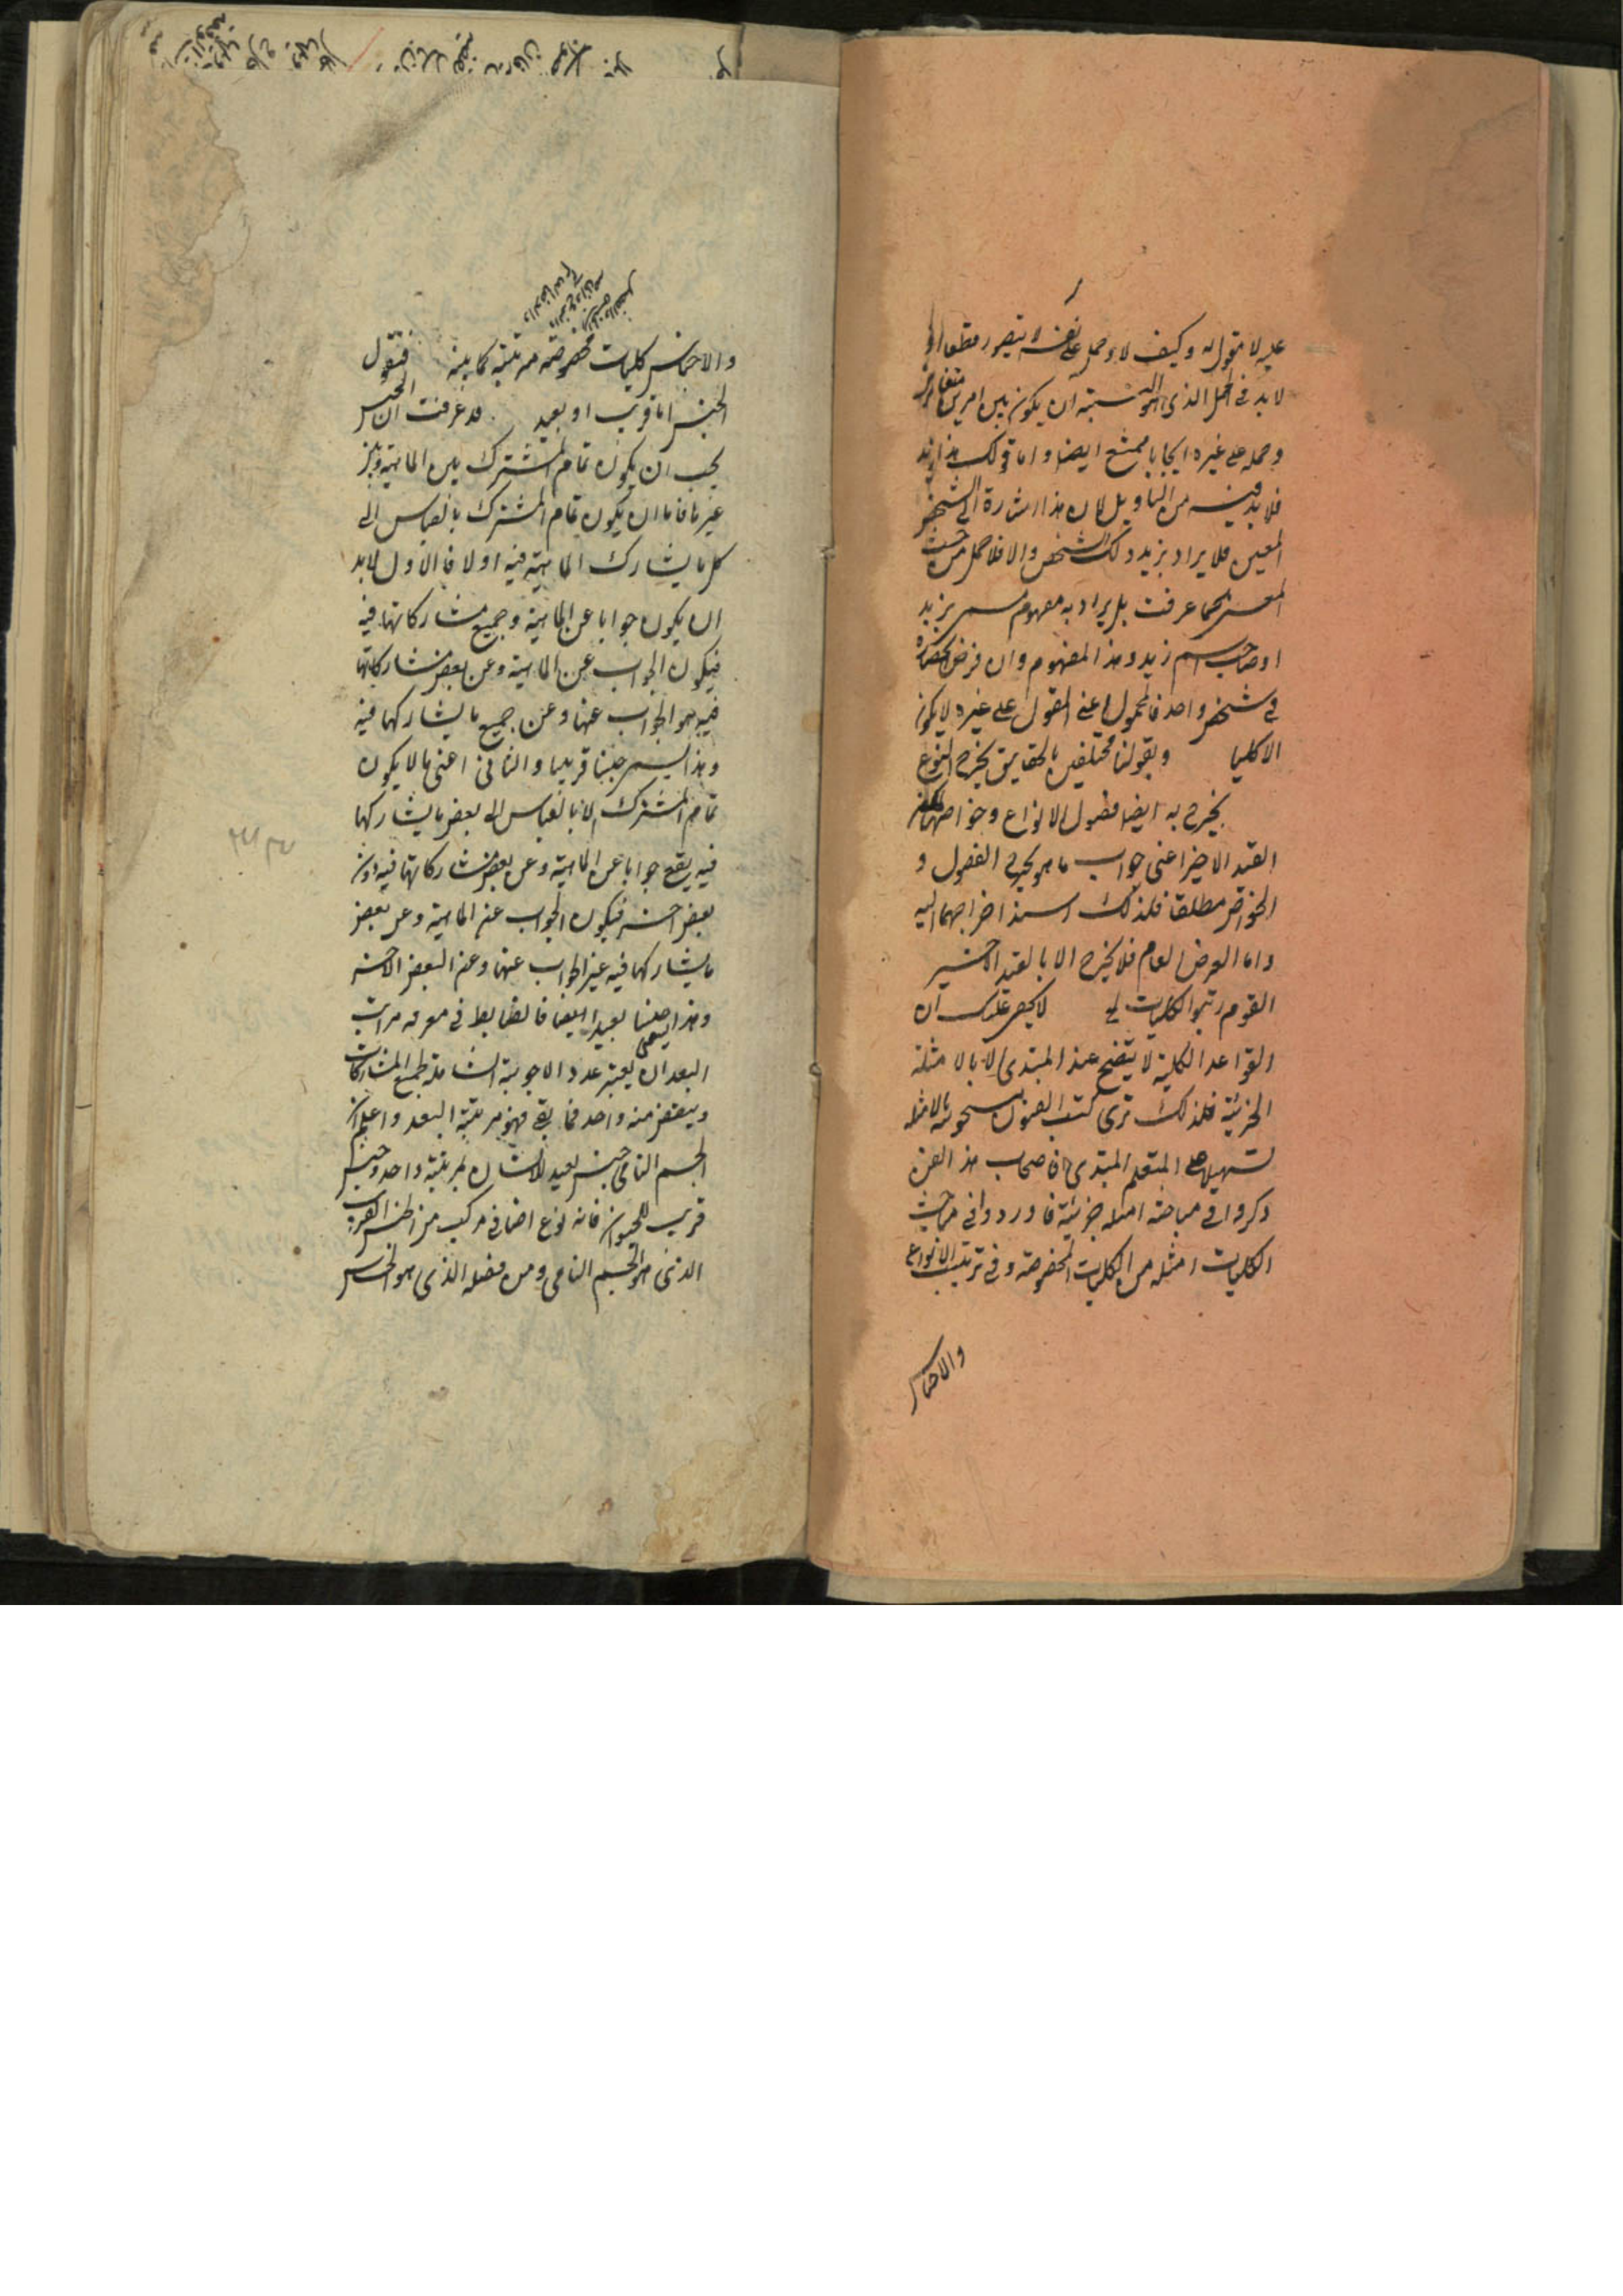 عليه لا مقول به وكيف لا وحمله على نفسه لا يتصور قطعا اذ
لا بد فى الحمل الذى هو النسبة ان يكون بين امرين متغايرين
وحمله على غيره ايجابا ممتنع ايضا واما قولك هذا زيد
فلا بد فيه من التاويل لان هذا اشارة الى الشخص
المعين فلا يراد بزيد ذلك الشخص والا فلا حمل من حيث
المعنى كما عرفت بل يراد به مفهوم مسمى بزيد
او صاحب اسم زيد وهذا المفهوم وان فرض انحصاره
فى شخص واحد فالمحمول اعنى المقول على غيره لا يكون
الا كليا وبقولنا مختلفين بالحقايق يخرج النوع
يخرج به ايضا فصول الانواع وخواصها لكن
القيد الاخير اعنى جواب ما هو يخرج الفصول و
الخواص مطلقا فلذلك اسند اخراجهما اليه
واما العرض العام فلا يخرج الا بالقيد الاخير
القوم رتبوا الكليات لا يخفى عليك ان
القواعد الكلية لا يتضح عند المبتدى الا بالامثلة
الجزئية فلذلك ترى كتب الفنون مشحونة بالامثلة
تسهيلا على المتعلم المبتدى فاصحاب هذا الفن
ذكروا فى مباحثه امثلة جزئية فاوردوا فى مباحث
الكليات امثلة من الكليات المخصوصة وفى ترتيب الانواع
والاجناس
والاجناس كليات مخصوصة مرتبة كما بينه فنقول
الجنس اما قريب او بعيد قد عرفت ان الجنس
يجب ان يكون تمام المشترك بين الماهية وبين
غيرها فاما ان يكون تمام المشترك بالقياس الى
كل ما يشارك الماهية فيه اولا فالاول لا بد
ان يكون جوابا عن الماهية وجميع مشاركاتها فيه
فيكون الجواب عن الماهية وعن بعض مشاركاتها
فيه هو الجواب عنها وعن جميع ما يشاركها فيه
وهذا يسمى جنسا قريبا والثانى اعنى ما لا يكون
تمام المشترك الا بالقياس الى بعض ما يشاركها
فيه يقع جوابا عن الماهية وعن بعض مشاركاتها فيه دون
بعض اخر فيكون الجواب عن الماهية وعن بعض
ما يشاركها فيه غير الجواب عنها وعن البعض الاخر
وهذا يسمى جنسا بعيدا ايضا فالضابط فى معرفة مراتب
البعد ان يعتبر عدد الاجوبة الشاملة لجميع المشاركات
وينقص منه واحد فما بقى فهو مرتبة البعد واعلم ان
الجسم النامى جنس بعيد للانسان بمرتبة واحدة وجنس
قريب للحيوان فانه نوع اضافى مركب من الجنس القريب
الذى هو الجسم النامى ومن فصله الذى هو الحساس